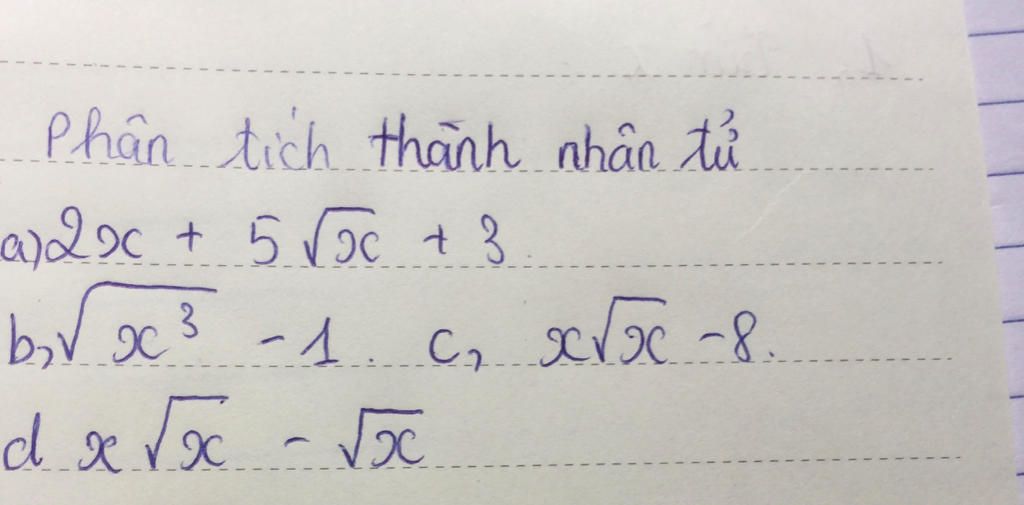 Phân tích thành nhân tử
a) 2x + 5√x + 3.
b, √x³ - 1. c, x√x - 8.
d x√x - √x